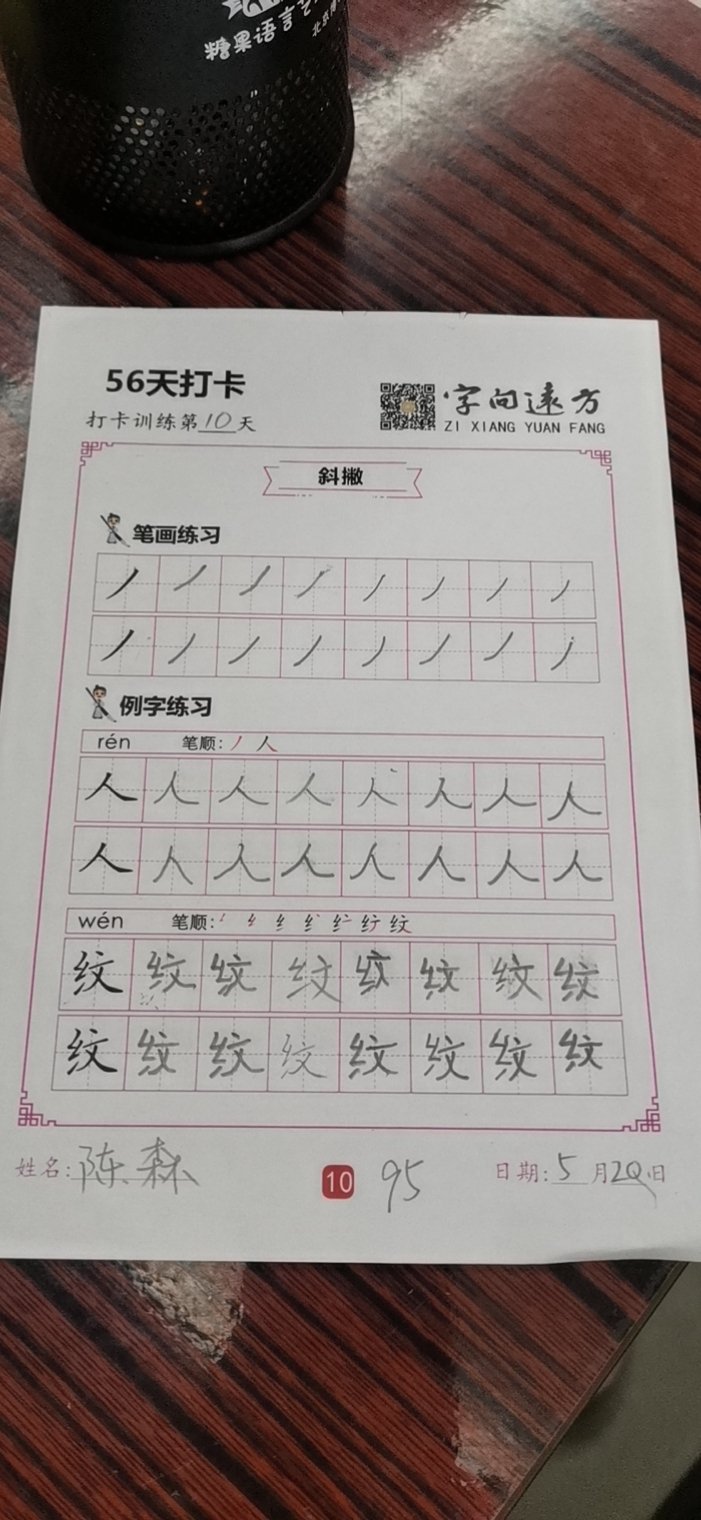 糖果语言艺
北京
56天打卡
字向远方
打卡训练第10天
ZI XIANG YUAN FANG
斜撇
笔画练习
丿丿丿丿丿丿丿丿
丿丿丿丿丿丿丿丿
例字练习
rén 笔顺: 丿 人
人人人人人人人人
人人人人人人人人
wén 笔顺:
纹纹纹纹纹纹纹纹
纹纹纹纹纹纹纹纹
姓名: 陈森 10 95 日期: 5月20日